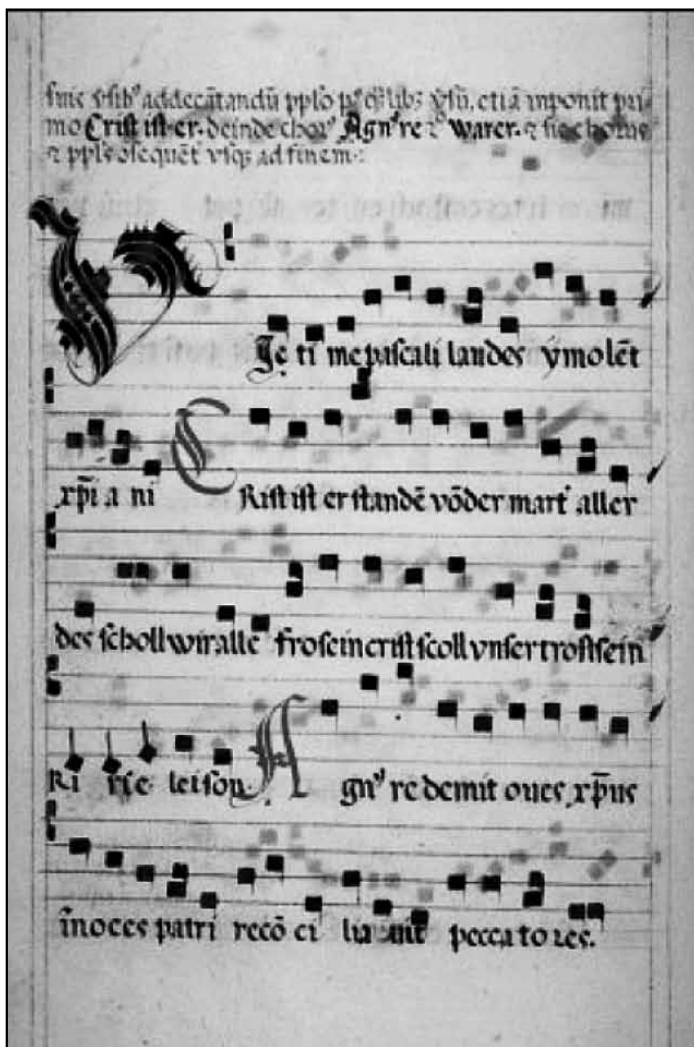 suis v̄sib⁹ ad decātandū pplō p⁹ q̄libꝫ v̄sū, etiā inponit pri-
mo Crist ist er. deinde chor⁹ Agn⁹ re ⁊ Warer. ⁊ sic chorus
⁊ ppls ꝯsequēt usqꝫ ad finem:
Ic ti me pascali laudes ȳmolēt
xp̄i a ni CRist ist er standē vō der mart aller
des scholl wir alle fro sein crist scoll vnser trost sein
Ki rie leison. Agn⁹ redemit oues xp̄us
īnoces patri recō ci lia uit pecca to res.